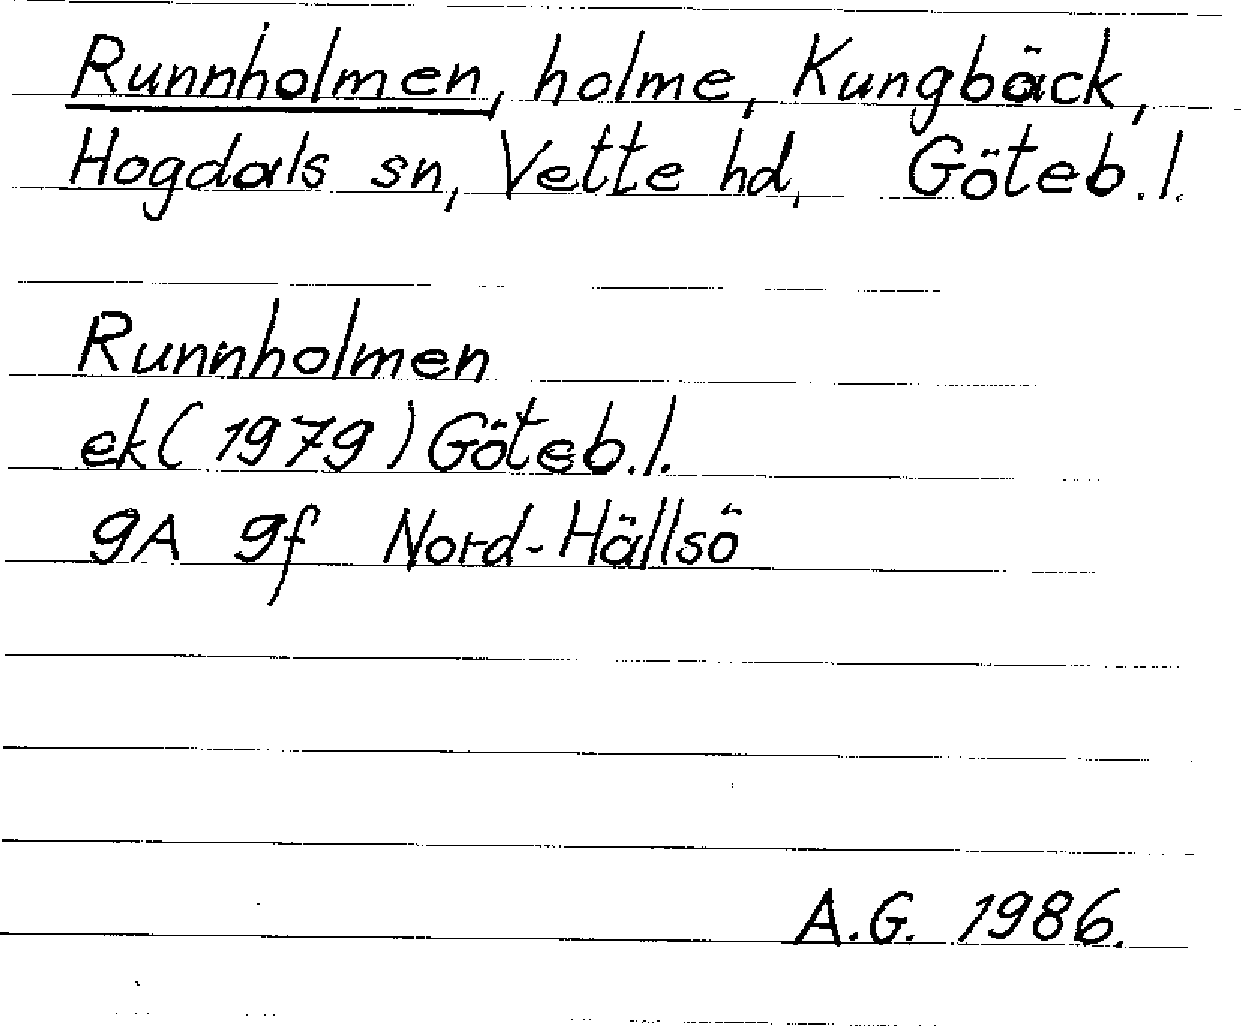 Runnholmen, holme, Kungbäck,
Hogdals sn, Vette hd, Göteb.l.
Runnholmen
ek (1979) Göteb.l.
9A 9f Nord-Hällsö
A.G. 1986.